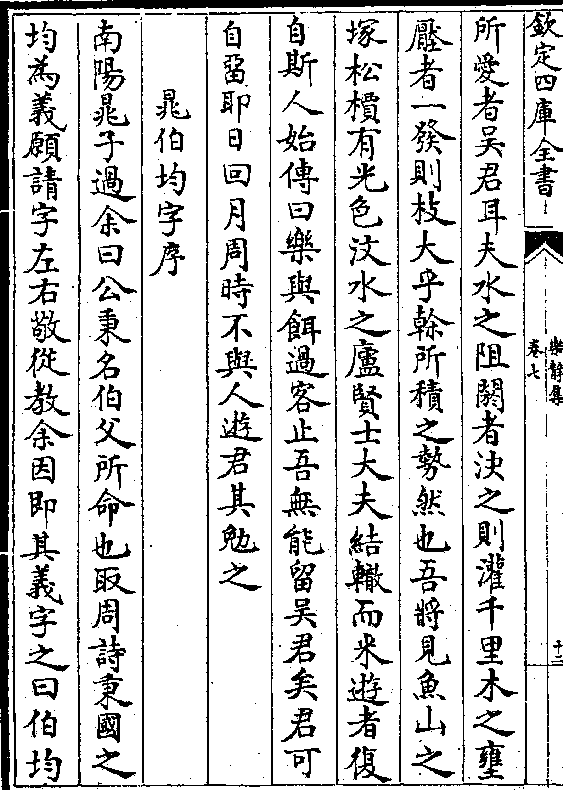 欽定四庫全書
樂靜集
卷七
十二
所愛者吴君耳夫水之阻閼者决之則灌千里木之壅
壓者一發則枝大乎榦所積之勢然也吾將見魚山之
塚松檟有光色汶水之廬賢士大夫結轍而来遊者復
自斯人始傳曰樂與餌過客止吾無能留吴君矣君可
自畱耶日回月周時不與人遊君其勉之
晁伯均字序
南陽晁子過余曰公秉名伯父所命也取周詩秉國之
均為義願請字左右敬從教余因即其義字之曰伯均